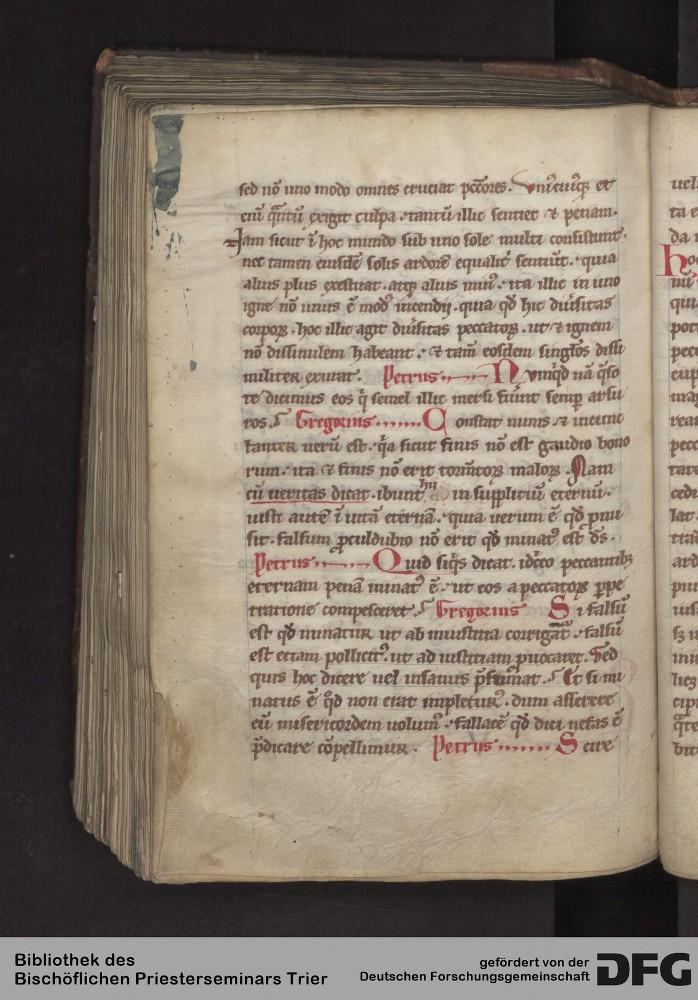 sed nō uno modo omnes cruciat pctōres. Uniꝰcuiꝰqꝫ et
eiꝰ q̄ntū exigit culpa. tantū illic sentiet ⁊ penam.
Iam sicut ī hoc mundo sub uno sole multi consistunt.
nec tamen eiusdē solis ardorē equalit̓ sentiūt. quia
alius plus exestuat. atqꝫ alius minꝰ. ita illic in uno
igne nō unus ē modꝰ incendii. quia qđ hic diūsitas
corpoꝝ. hoc illic agit diūsitas peccatoꝝ. ut ⁊ ignem
nō dissimilem habeant. ⁊ tam̄ eosdem singl̄os dissi
militer exurat. Petrus Numqͥd nā q̄so
te dicimus eos q̄ semel illic mersi fūint semꝑ arsu
ros. Gregorius Constat nimis ⁊ incunc
tanter uerū est. qͥa sicut finis nō est gaudio bono
rum. ita ⁊ finis nō erit torm̄toꝝ maloꝝ. Nam
cū ueritas dicat. ibunt hii in suppliciū eternū.
iusti autē ī uitā eternā. quia uerum ē qđ ꝓmi
sit. falsum ꝓculdubio nō erit qđ minatꝰ est ds̄.
Petrus Quid siqͥs dicat. idcͥco peccantibꝫ
eternam penā minatꝰ ē. ut eos a peccatoꝝ ꝑpe
tratione compesceret. Gregorius Si falsū
est qđ minatur ut ab iniustitia corrigat. falsū
est etiam pollicitꝰ. ut ad iustitiam ꝓuocaret. Sed
quis hoc dicere uel insanus p̄sumat. Et si mi
natus ē qđ non erat impleturꝰ. dum asserere
eū misericordem uolumꝰ. fallacē qđ dici nefas ē
p̄dicare cōpellimur. Petrus Scire
uel
ta e
da
Hoc
nū
qui
pot
pecc
cup
mag
rean
pecc
tare
cedi
lat.
tiad
ard
pni
uisi
inui
liez
cipi
bit
Bibliothek des
Bischöflichen Priesterseminars Trier
gefördert von der
Deutschen Forschungsgemeinschaft DFG